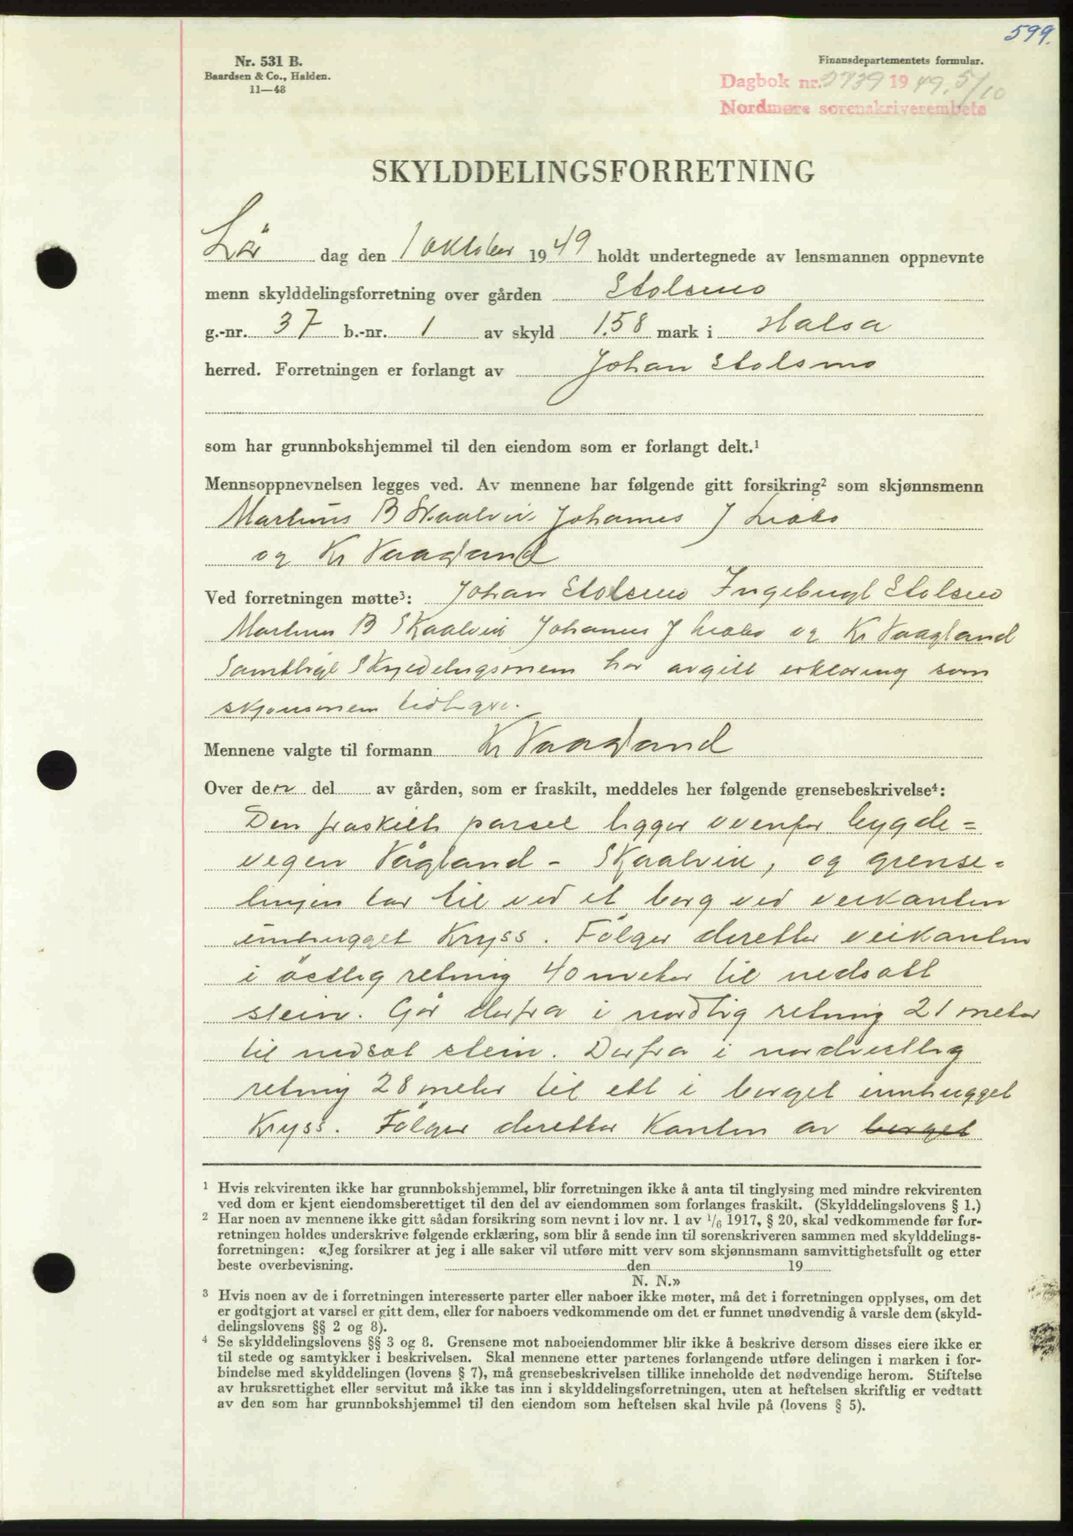 599.
Nr. 531 B.
Baardsen & Co., Halden.
11—48
Finansdepartementets formular.
Dagbok nr. 2739 1949. 5/10
Nordmøre sorenskriverembete
SKYLDDELINGSFORRETNING
Lør dag den 1 oktober 1949 holdt undertegnede av lensmannen oppnevnte
menn skylddelingsforretning over gården Stolsmo
g.-nr. 37 b.-nr. 1 av skyld 1.58 mark i Halsa
herred. Forretningen er forlangt av Johan Stolsmo
som har grunnbokshjemmel til den eiendom som er forlangt delt.¹
Mennsoppnevnelsen legges ved. Av mennene har følgende gitt forsikring² som skjønnsmenn
Martinus B Skaalvik Johannes J
og Kr Vaagland
Ved forretningen møtte³: Johan Stolsmo Ingebrigt Stolsmo
Martinus B Skaalvik Johannes J og Kr Vaagland
Samtlige Skyldelingsmenn har avgitt erklæring som
skjønsmenn tidligere.
Mennene valgte til formann Kr Vaagland
Over den del av gården, som er fraskilt, meddeles her følgende grensebeskrivelse⁴:
Den fraskilte parsel ligger ovenfor bygde=
vegen Vågland - Skaalvik, og grense=
linjen tar til ved et berg ved veikanten
innhugget Kryss. Følger deretter veikanten
i østlig retning 40 meter til nedsatt
stein. Går derfra i nordlig retning 21 meter
til nedsat stein. Derfra i nordvestlig
retning 28 meter til ett i berget innhugget
Kryss. Følger deretter Kanten av berget
¹ Hvis rekvirenten ikke har grunnbokshjemmel, blir forretningen ikke å anta til tinglysing med mindre rekvirenten
ved dom er kjent eiendomsberettiget til den del av eiendommen som forlanges fraskilt. (Skylddelingslovens § 1.)
² Har noen av mennene ikke gitt sådan forsikring som nevnt i lov nr. 1 av 1/6 1917, § 20, skal vedkommende før for-
retningen holdes underskrive følgende erklæring, som blir å sende inn til sorenskriveren sammen med skylddelings-
forretningen: «Jeg forsikrer at jeg i alle saker vil utføre mitt verv som skjønnsmann samvittighetsfullt og etter
beste overbevisning. den 19
N. N.»
³ Hvis noen av de i forretningen interesserte parter eller naboer ikke møter, må det i forretningen opplyses, om det
er godtgjort at varsel er gitt dem, eller for naboers vedkommende om det er funnet unødvendig å varsle dem (skyld-
delingslovens §§ 2 og 8).
⁴ Se skylddelingslovens §§ 3 og 8. Grensene mot naboeiendommer blir ikke å beskrive dersom disses eiere ikke er
til stede og samtykker i beskrivelsen. Skal mennene etter partenes forlangende utføre delingen i marken i for-
bindelse med skylddelingen (lovens § 7), må grensebeskrivelsen tillike inneholde det nødvendige herom. Stiftelse
av bruksrettighet eller servitut må ikke tas inn i skylddelingsforretningen, uten at heftelsen skriftlig er vedtatt
av den som har grunnbokshjemmel til den eiendom som heftelsen skal hvile på (lovens § 5).